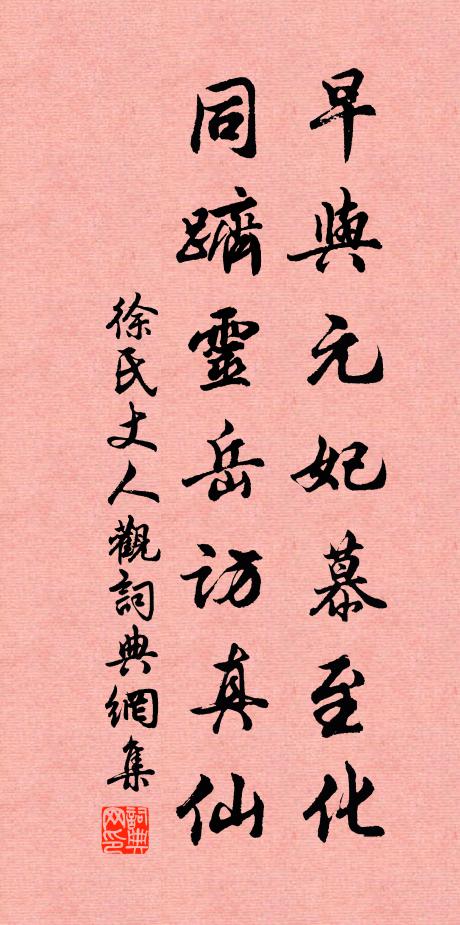 早與元妃慕至化
同躋靈岳訪真仙
徐氏丈人觀詞典網集
詞典網印